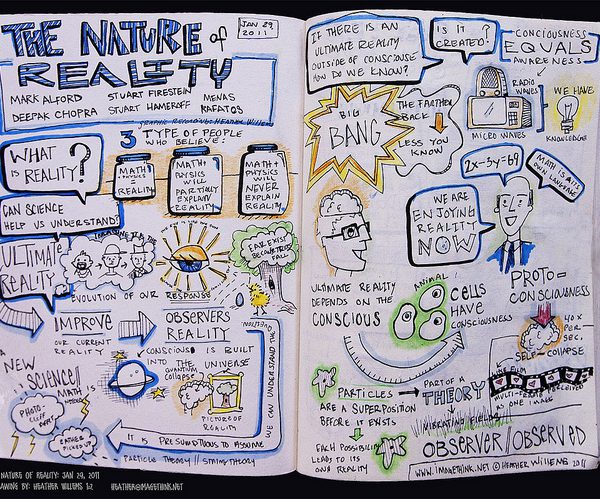 THE NATURE of
REALITY
JAN 29,
2011
MARK ALFORD
STUART FIRESTEIN
MENAS
DEEPAK CHOPRA
STUART HAMEROFF
KAFATOS
GRAPHIC RECORDING: HEATHER WILLEMS
WHAT
IS REALITY?
3 TYPE OF PEOPLE
WHO BELIEVE:
MATH +
PHYSICS =
REALITY
MATH +
PHYSICS
WILL
PARTIALLY
EXPLAIN
REALITY
MATH +
PHYSICS
WILL
NEVER
EXPLAIN
REALITY
CAN SCIENCE
HELP US UNDERSTAND?
ULTIMATE
REALITY
EVOLUTION OF OUR
RESPONSE
EAR EXIST
BECAUSE TREES
FALL
IMPROVE
OUR CURRENT
REALITY
OBSERVERS
REALITY
CONSCIOUS IS BUILT
INTO THE UNIVERSE
QUANTUM
COLLAPSE
PICTURE OF
REALITY
WE CAN UNDERSTAND THE
NEW
SCIENCE!
MATH IS
PHOTO-
EATHER
PICKED UP
IT IS PRESUMPTUOUS TO ASSUME
PARTICLE THEORY // STRING THEORY
IF THERE IS AN
ULTIMATE REALITY
OUTSIDE OF CONSCIOUS
HOW DO WE KNOW?
IS IT
CREATED?
CONCIOUSNESS
EQUALS
AWARENESS
BIG
BANG
THE FARTHER
BACK
LESS YOU
KNOW
RADIO
WAVES
MICRO WAVES
WE HAVE
KNOWLEDGE
2x-3y=69
MATH IS ITS
OWN LANGUAGE
WE ARE
ENJOYING
REALITY
NOW
ULTIMATE REALITY
DEPENDS ON THE
CONSCIOUS
ANIMAL
CELLS
HAVE
CONSCIOUSNESS
PROTO-
CONSCIOUSNESS
40 X
PER
SEC.
SELF-COLLAPSE
LIKE FILM
MULTI-FRAME PERCEIVED
AS ONE IMAGE
PARTICLES
ARE A SUPERPOSITION
BEFORE IT EXISTS
PART OF A
THEORY
VIBRATING
EACH POSSIBILITY
LEADS TO ITS
OWN REALITY
OBSERVER/OBSERVED
WWW.IMAGETHINK.NET © HEATHER WILLEMS 2011
NATURE OF REALITY: JAN 29, 2011
AWING BY: HEATHER WILLEMS
HEATHER@IMAGETHINK.NET